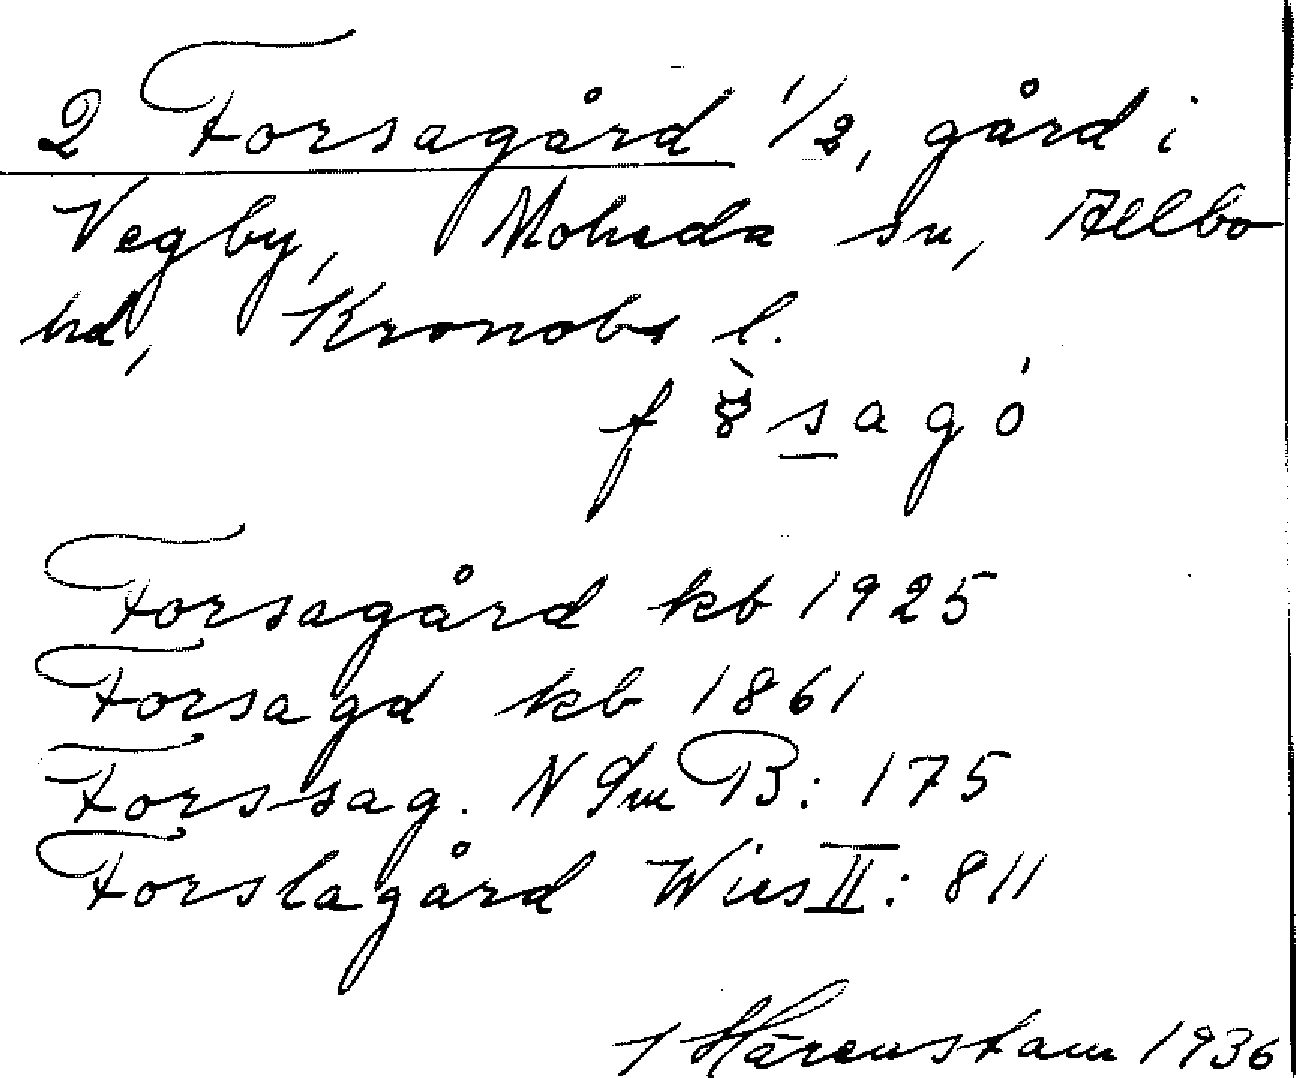 2 Forsagård 1/2, gård i
Vegby, Moheda sn, Allbo
hd, Kronobs l.
sagó
Forsagård kb 1925
Forsagd kb 1861
Forssag. N Sm B: 175
Forslagård Wies II: 811
Härenstam 1936